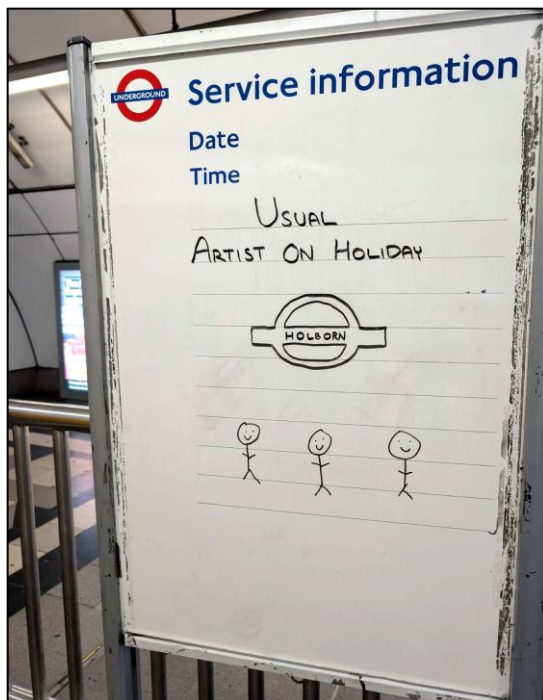 UNDERGROUND
Service information
Date
Time
USUAL
ARTIST ON HOLIDAY
HOLBORN